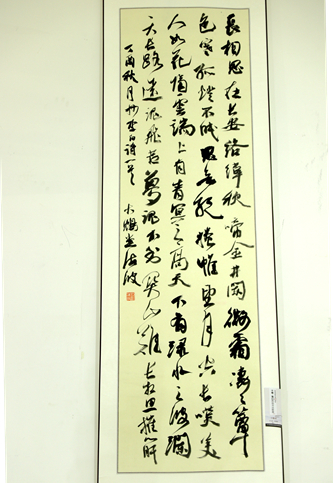 長相思在長安絡緯秋啼金井闌微霜凄凄簟
色寒孤燈不明思欲絕捲帷望月空長嘆美
人如花隔雲端上有青冥之高天下有淥水之波瀾
天長路遠魂飛苦夢魂不到關山難長相思摧心肝
丁酉秋月抄李白詩一首